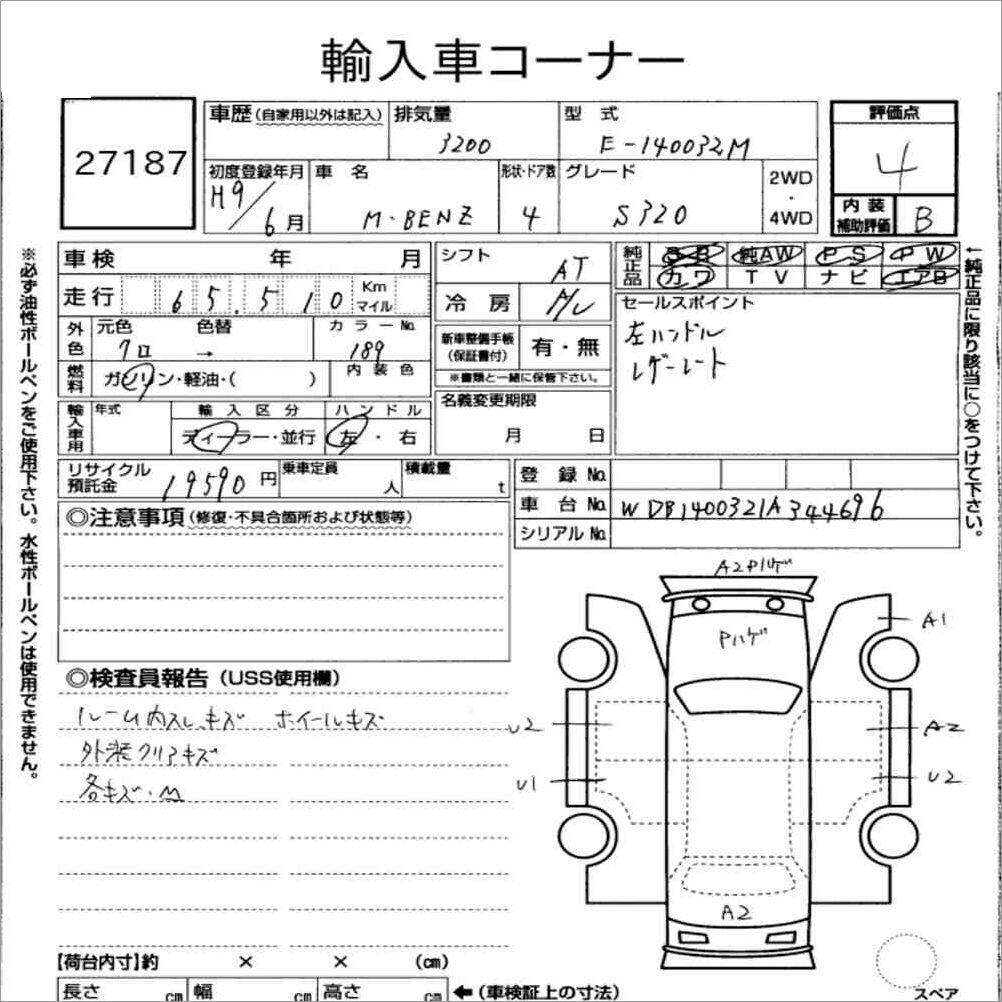 輸入車コーナー
27187
車歴 (自家用以外は記入)
排気量
3200
型 式
E-140032M
評価点
4
初度登録年月
H9/6月
車 名
M・BENZ
形状・ドア数
4
グレード
S320
2WD
・
4WD
内 装
補助評価
B
車検 年 月
走行 65,510 Km
マイル
外色
元色 色替 カラーNo.
クロ → 189
燃料
ガソリン・軽油・( )
内 装 色
輸入車用
年式
輸 入 区 分
ディーラー・並行
ハ ン ド ル
左 ・ 右
シフト
AT
冷 房
新車整備手帳
(保証書付)
有・無
※書類と一緒に保管下さい。
名義変更期限
月 日
純正品
SR 純AW P S P W
カワ T V ナビ エアB
セールスポイント
左ハンドル
レザーシート
←純正品に限り該当に○をつけて下さい。
※必ず油性ボールペンをご使用下さい。水性ボールペンは使用できません。
リサイクル
預託金
19590円
乗車定員
人
積載量
t
登 録 No.
車 台 No.
WDB1400321A344696
シリアル No.
◎注意事項 (修復・不具合箇所および状態等)
◎検査員報告 (USS使用欄)
ルーム内スレキズ ホイールキズ
外装クリアキズ
各キズ・M
A2Pハゲ
Pハゲ
A1
U2
A2
U1
U2
A2
【荷台内寸】約 × × (cm)
長さ cm 幅 cm 高さ cm ← (車検証上の寸法)
スペア